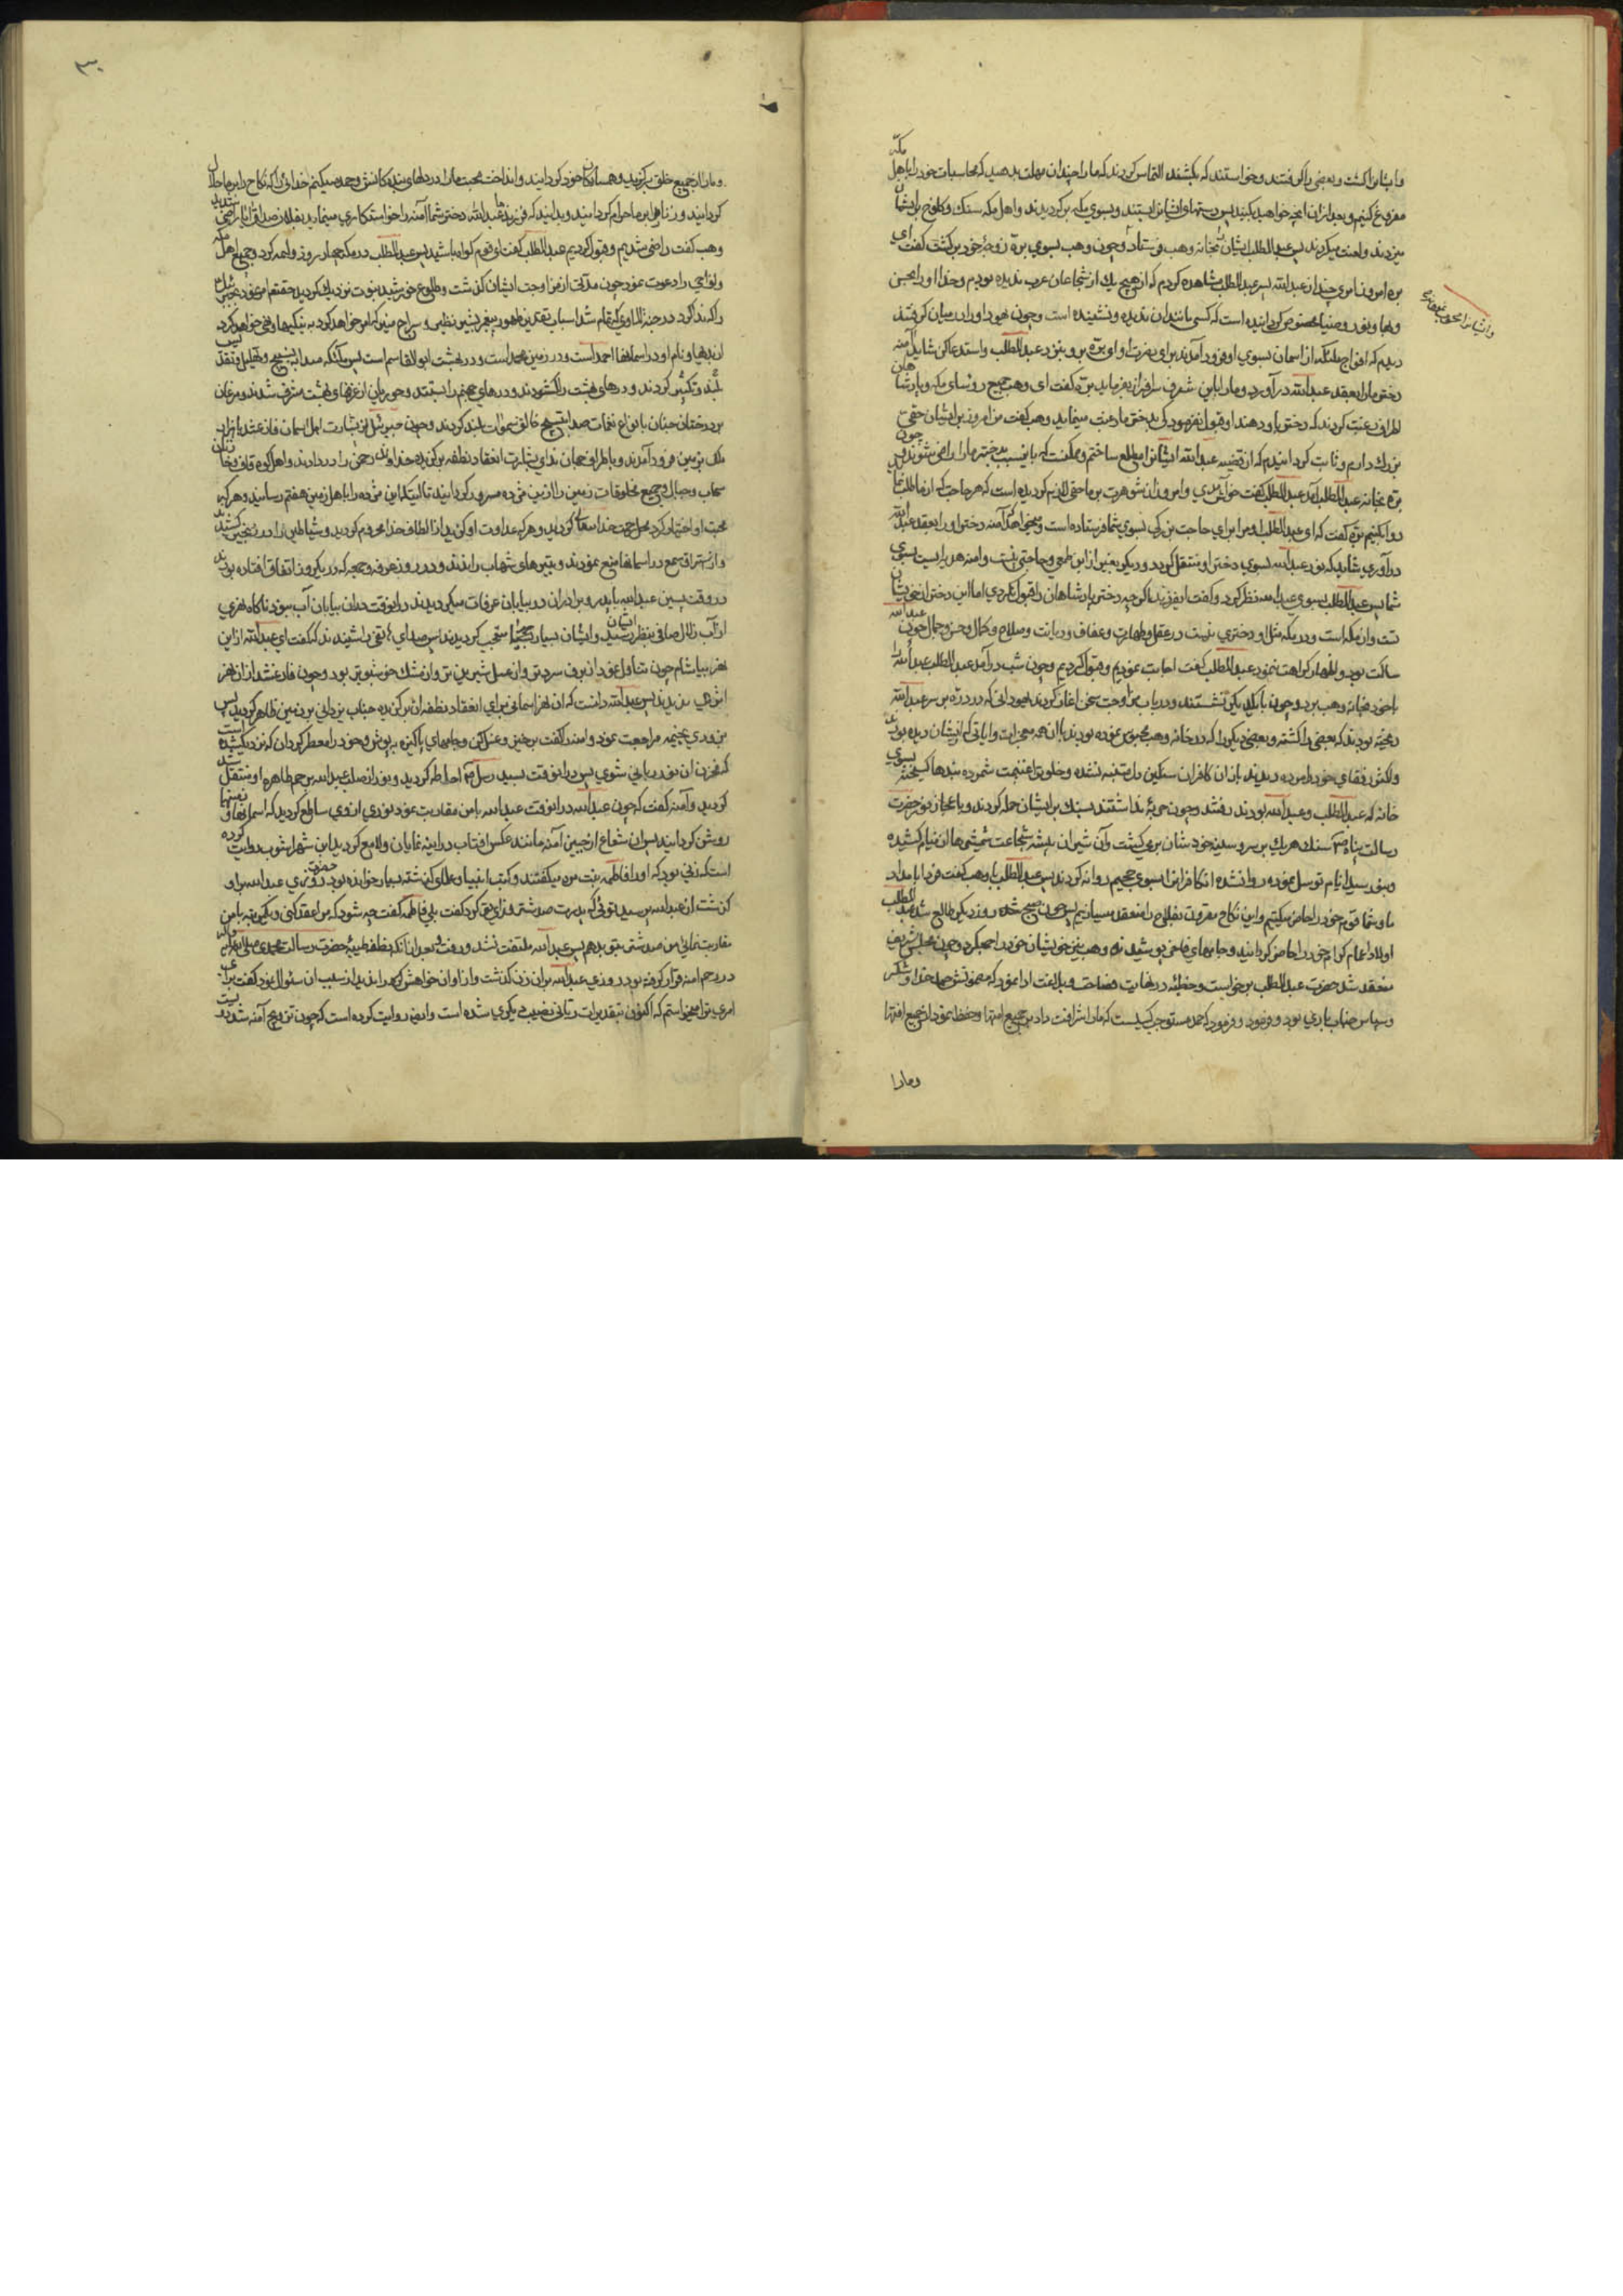 مکه
و ایشان را کشت و بعضی را گرفتند و خواستند که بکشند التماس کردند که ما را چندان مهلت بدهید که محاسبات خود را با اهل
مفروغ کنیم و بعد از آن آنچه خواهید بکنید پس دستهای ایشان را بستند و بسوی مکه برگردیدند و اهل مکه سنگ و کلوخ بر ایشان
میزدند و لعنت میکردند پس عبدالمطلب ایشان را بخانه وهب فرستاد و چون وهب بسوی بره زوجه خود برگشت گفت ای
بره امروز امری چند از عبدالله پسر عبدالمطلب مشاهده کردم که از هیچ یک از شجاعان عرب ندیده بودم و خدا او را بحسن
و بها و نور و ضیا مخصوص گردانیده است که کسی مانند آن ندیده و نشنیده است و چون یهود او را در میان گرفتند
دیدم که افواج ملائکه از آسمان بسوی او فرود آمدند برای نصرت او ای بره برو بنزد عبدالمطلب و استدعا کن شاید آمنه
دختر ما را بعقد عبدالله درآورد و ما را باین شرف سرافراز بفرماید بره گفت ای وهب جمیع رؤسای مکه و پادشاهان
اطراف رغبت کردند که دختر باو دهند او قبول نفرمود کی بدختر ما رغبت مینماید وهب گفت من امروز بر ایشان حقی
بزرگ دارم و ثابت گردانیدم که از قضیه عبدالله ایشان را مطلع ساختم و ممکنست که باین سبب بدختر ما راضی شوند چون
بره بخانه عبدالمطلب آمد عبدالمطلب گفت خوش آمدی و امروز از شوهرت بر ما حقی لازم گردیده است که هر حاجت که از ما طلب نماید
روا بکنیم بره گفت که ای عبدالمطلب او مرا برای حاجت بزرگی بسوی شما فرستاده است و میخواهد که آمنه دختر او را بعقد عبدالله
درآوری شاید که نور عبدالله بسوی دختر او منتقل گردد و دیگر بغیر از این طمعی و حاجتی نیست و آمنه هدیه ایست بسوی
شما پس عبدالمطلب بسوی عبدالله نظر کرد و گفت ای فرزند اگر چه دختر پادشاهان را قبول نکردی اما این دختر از خویشان
تست و از مکه است و در مکه مثل او دختری نیست در عقل و طهارت و عفاف و دیانت و صلاح و کمال و حسن و جمال چون عبدالله
ساکت بود و اظهار کراهت ننمود عبدالمطلب گفت اجابت نمودیم و قبول کردیم و چون شب درآمد عبدالمطلب عبدالله را
با خود بخانه وهب برد و چون با یکدیگر نشستند و در باب مزاوجت سخن آغاز کردند یهودانی که در دره بر سر عبدالله
ریخته بودند که بعضی را کشته و بعضی دیگر را که در خانه وهب محبوس نموده بودند با آن همه معجزات و آیاتی که از ایشان دیده بودند
خانه که عبدالمطلب و عبدالله بودند رفتند و چون حربه نداشتند بسنگ بر ایشان حمله کردند و باعجاز نور حضرت
رسالت پناه سنگ هر یک بر سر و سینه خود شان برمیگشت و آن شیران بیشه شجاعت شمشیرها از نیام کشیده
و بنور سید انام توسل نموده روانشده آن کافران را بسوی جحیم روانه کردند پس عبدالمطلب با وهب گفت فردا بامداد
ما و شما قوم خود را حاضر میکنیم و این نکاح مقرون بفلاح را منعقد میسازیم پس چون صبح شد و روز دیگر طالع شد عبدالمطلب
اولاد و اعمام کرام خود را حاضر گردانید و جامهای فاخر پوشیدند و وهب نیز خویشان خود را جمع کرد و چون مجلس شریف
منعقد شد حضرت عبدالمطلب برخواست و خطبه در نهایت فصاحت و بلاغت ادا نمود که مضمونش حمد خدا و شکر
و سپاس جناب باری بود و فرمود
و ما را
و ایشان را
و ما را از جمیع خلق برگزید و همسایگان خود گردانید و انداخت محبت ما را در دلهای بندگانش و حمد میکنم خدائی را که نکاح را بر ما حلال
گردانید و زنا را بر ما حرام گردانید و بدانید که فرزند ما عبدالله دختر شما آمنه را خواستگاری مینماید بفلان صداق آیا راضی شدید
وهب گفت راضی شدیم و قبول کردیم عبدالمطلب گفت ای قوم گواه باشید پس عبدالمطلب در مکه چهار روز ولیمه کرد و جمیع اهل مکه
و نواحی را دعوت نمود چون مدتی از مزاوجت ایشان گذشت و طلوع خورشید نبوت نزدیک گردید حقتعالی امر نمود بجبرئیل
را که ندا کرد در جنة الماوی که تمام شد اسباب تقدیر ظهور پیغمبر بشیر و نذیر و سراج منیر که امر خواهد کرد به نیکیها و نهی خواهد کرد
از بدیها و نام او در آسمانها احمد است و در زمین محمد است و در بهشت ابوالقاسم است پس ملائکه صدا به تسبیح و تهلیل و تقدیس
بلند و تکبیر کردند و درهای بهشت را گشودند و درهای جهنم را بستند و حوریان از غرفهای بهشت مشرف شدند و مرغان
بر درختان جنان بانواع نغمات صدا بتسبیح خالق سموات بلند کردند و چون جبرئیل از بشارت اهل آسمان فارغ شد با هزار
ملک بزمین فرود آمدند و باطراف جهان ندای بشارت انعقاد نطفه برگزیده خداوند رحمن را در دادند و اهل کوه قاف و
سحاب و جبال و جمیع مخلوقات زمین را از این مژده مسرور گردانیدند تا آنکه این مژده را باهل زمین هفتم رسانید و هر که
محبت او اختیار کرد محل رحمت خدا گردید و هر که عداوت او گزید از الطاف خدا محروم گردید و شیاطین را در زنجیر کشیدند
و از استراق سمع در آسمانها منع نمودند و بتیرهای شهاب راندند و در روز عرفه و جمعه که در یکروز اتفاق افتاده بودند
در وقت پسین عبدالله با پدر و برادران در بیابان عرفات میگردیدند در آنوقت در آن بیابان آب نبود ناگاه نهری
از آب زلال صافی بنظر ایشان رسید و ایشان بسیار متعجب گردیدند پس صدای شنیدند که گفت ای عبدالله از این
نهر بیاشام چون تناول نمود از برف سردتر و از عسل شیرین تر و از مشک خوشبوتر بود و چون فارغ شد از آن نهر
اثری ندیدند پس عبدالله دانست که آن نهر آسمانی برای انعقاد نطفه آن برگزیده جناب یزدانی بر زمین ظاهر گردید پس
بزودی بخیمه مراجعت نمود و آمنه را گفت برخیز و غسل کن و جامهای پاکیزه بپوش و خود را معطر گردان که نزدیک شده است
که مخزن آن نور ربانی شوی پس در آنوقت بسید رسل حامله گردید و نور از صلب عبدالله برحم طاهره او منتقل شد
گردید و آمنه گفت که چون عبدالله در آنوقت با من مقاربت نمود نوری از وی ساطع گردید که آسمانها و زمینها
روشن گردانید پس آن شعاع از جبین آمنه مانند عکس آفتاب در آینه نمایان و لامع گردید ابن شهر آشوب روایت کرده
است که زنی بود که او را فاطمه بنت مره میگفتند و کتب انبیا و علمای گذشته بسیار خوانده بود روزی عبدالله بر او
گذشت از عبدالله پرسید توئی که پدرت صد شتر فدای تو کرد گفت بلی فاطمه گفت چه شود که مرا عقد کنی و یکمرتبه با من
مقاربت نمائی من صد شتر بتو بدهم پس عبدالله ملتفت نشد و رفت و بعد از آنکه نطفه طیبه حضرت رسالت محمدی صلی الله علیه و آله
در رحم آمنه قرار گرفته بود روزی عبدالله بر آن زن گذشت و از او آن خواهش که ندید از سبب آن سئوال نمود گفت برای
امری ترا میخواستم که اکنون بتقدیرات ربانی نصیب دیگری شده است و ایضا روایت کرده است که چون تزویج آمنه شد